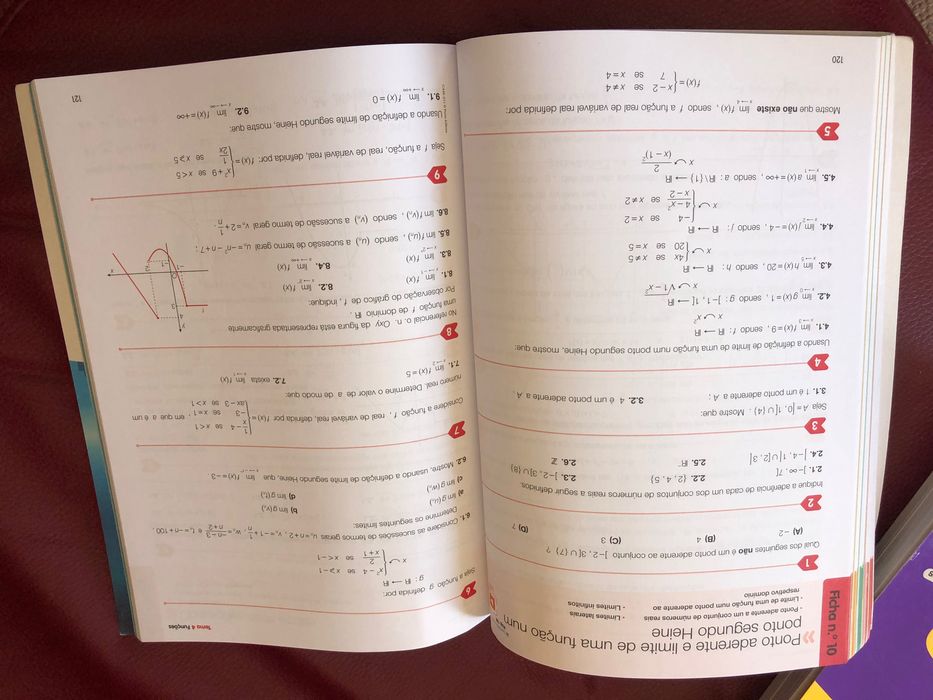 Ficha n.º 10
Ponto aderente e limite de uma função num
ponto segundo Heine
• Ponto aderente a um conjunto de números reais
• Limite de uma função num ponto aderente ao
respetivo domínio
• Limites laterais
• Limites infinitos
1
Qual dos seguintes não é um ponto aderente ao conjunto ]−2, 3[∪{7} ?
(A) −2 (B) 4 (C) 3 (D) 7
2
Indique a aderência de cada um dos conjuntos de números reais a seguir definidos.
2.1. ]−∞, 7[ 2.2. {2, 4, 5} 2.3. ]−2, 3]∪{8}
2.4. ]−4, 1[∪[2, 3[ 2.5. ℝ⁻ 2.6. ℤ
3
Seja A = ]0, 1[∪{4} . Mostre que:
3.1. 1 é um ponto aderente a A ; 3.2. 4 é um ponto aderente a A .
4
Usando a definição de limite de uma função num ponto segundo Heine, mostre que:
4.1. lim x→3 f(x) = 9 , sendo f : ℝ → ℝ
x ↷ x²
4.2. lim x→0 g(x) = 1 , sendo g : ]−1, 1[ → ℝ
x ↷ √1 − x²
4.3. lim x→5 h(x) = 20 , sendo h : ℝ → ℝ
x ↷ { 4x se x ≠ 5
20 se x = 5
4.4. lim x→2 j(x) = −4 , sendo j : ℝ → ℝ
x ↷ { −4 se x = 2
4 − x² / x − 2 se x ≠ 2
4.5. lim x→1 a(x) = +∞ , sendo a : ℝ\{1} → ℝ
x ↷ 2 / (x − 1)²
5
Mostre que não existe lim x→4 f(x) , sendo f a função real de variável real definida por:
f(x) = { x − 2 se x ≠ 4
7 se x = 4
120
Tema 4 Funções
6
Seja a função g definida por:
g : ℝ → ℝ
x ↷ { x² − 4 se x ⩾ −1
2 / x + 1 se x < −1
6.1. Considere as sucessões de termos gerais uₙ = n + 2 , vₙ = −1 + 1/n , wₙ = −n − 3 / n + 2 e tₙ = −n + 100 .
Determine os seguintes limites:
a) lim g(uₙ) b) lim g(vₙ)
c) lim g(wₙ) d) lim g(tₙ)
6.2. Mostre, usando a definição de limite segundo Heine, que lim x→−1⁺ f(x) = −3
7
Considere a função f , real de variável real, definida por f(x) = { 1/x − 4 se x < 1
−3 se x = 1 , em que a é um
ax − 3 se x > 1
número real. Determine o valor de a de modo que:
7.1. lim x→2 f(x) = 5 7.2. exista lim x→1 f(x)
8
No referencial o. n. Oxy da figura está representada graficamente
uma função f de domínio ℝ .
Por observação do gráfico de f , indique:
8.1. lim x→−1⁻ f(x) 8.2. lim x→2⁻ f(x)
8.3. lim x→2⁺ f(x) 8.4. lim x→+∞ f(x)
8.5. lim f(uₙ) , sendo (uₙ) a sucessão de termo geral uₙ = −n² − n + 7 ;
8.6. lim f(vₙ) , sendo (vₙ) a sucessão de termo geral vₙ = 2 + 1/n .
y
4
3
−1
O
−1
2
x
9
Seja f a função, real de variável real, definida por: f(x) = { x² + 9 se x < 5
1 / 2x se x ⩾ 5
Usando a definição de limite segundo Heine, mostre que:
9.1. lim x→+∞ f(x) = 0 9.2. lim x→−∞ f(x) = +∞
121